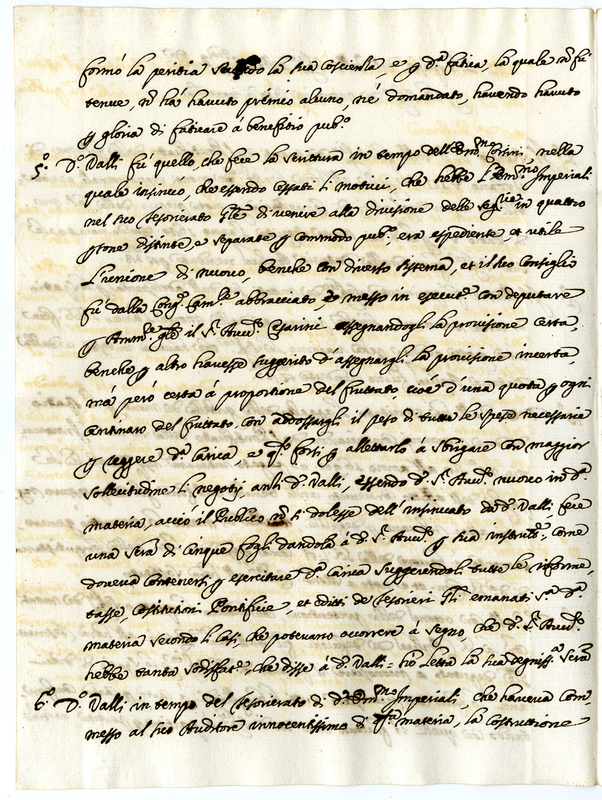 formò la peritia secondo la sua coscienza, e p d.ª fatica, la quale ñ fù
tenue, ñ hà havuto premio alcuno, né domandato, havendo havuto
p gloria di faticare à benefitio pub.º
5.º D.º Valli fù quello, che fece la scrittura in tempo dell'Em.mo Corsini, nella
quale insinuò, che essendo cessati li motivi, che hebbe l'Em.mo Imperiali
nel suo Tesorierato Gñle di venire alla divisione delle in quattro
p̃sone distinte, e separate p commodo pub.º, era espediente, et utile
L'unione di nuovo, benche con diverso sistema, et il suo Consiglio
fù dalla Cam.le abbracciato, e messo in con deputare
p il S.r Aud.e Cesarini assegnandogli la provisione certa,
benche p altro havesse suggerito d'assegnargli la provisione incerta,
mà però certa à proportione del fruttato, cioè d'una quota p ogni
centinaro del fruttato, con addossargli il peso di tutte le spese necessarie
p reggere d.ª Carica, e q.º forsi p allettarlo à sbrigare con maggior
sollecitudine li negotij, anzi d.º Valli, essendo d.º S.r Aud.e nuovo in d.ª
materia, acciò il Publico ñ si dolesse dell'insinuato da d.º Valli fece
una di cinque fogli dandola à d.º S.r Aud.e p sua come
doveva contenersi p esercitare d.ª Carica suggerendoli tutte le riforme,
tasse, costitutioni Pontificie, et editti de Tesorieri Gñli emanati s.ª d.ª
materia secondo li casi, che potevano occorrere à segno, che d.º S.r Aud.e
hebbe tanta che disse à d.º Valli = hò letta la sua degniss.ª
6.º D.º Valli in tempo del Tesorierato di d.º Em.mo Imperiali, che haveva com
messo al suo Auditore innocentissimo di q.sta materia, la costruzione